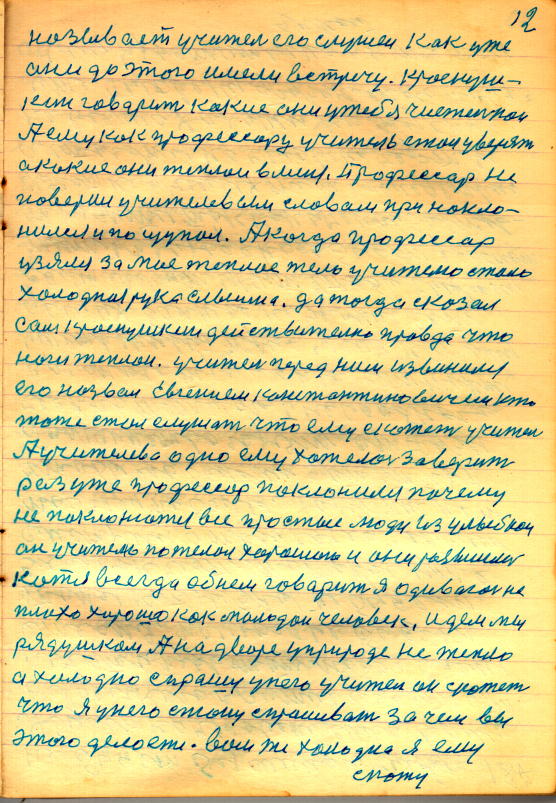 12
называет учител его слушеи как уже
они до этого имели встречу. Краснуш-
кин говарит какие они у тебя чистенкои
А ему как професору учитель стал уверят
а какие они теплои в мин. Професар не
поверил учителевым словам при накло-
нился и по щупал. А когда професар
узялся за мое теплое тело учителю стало
холодная рука слышна. да тогда сказал
сам Краснушкин действително правда что
ноги теплои. учител перед ним извинился
его назвал Евгением константиновичем кто
тоже стал слушат что ему скажет учител
А учителева одно ему хотелос заверит
раз уже професар поклонился почему
не поклонятся все простые люди из улыбкои
он учитель потелои хорошои и они
хотя всегда обнем говарит я одивалос не
плохо хорошо как молодои человек, идем мы
рядушком А на дворе у природе не тепло
а холодно спрашу у него учител он скажет
что я у него стану спрашиват за чем вы
этого делаете. вам же холодна я ему
скажу